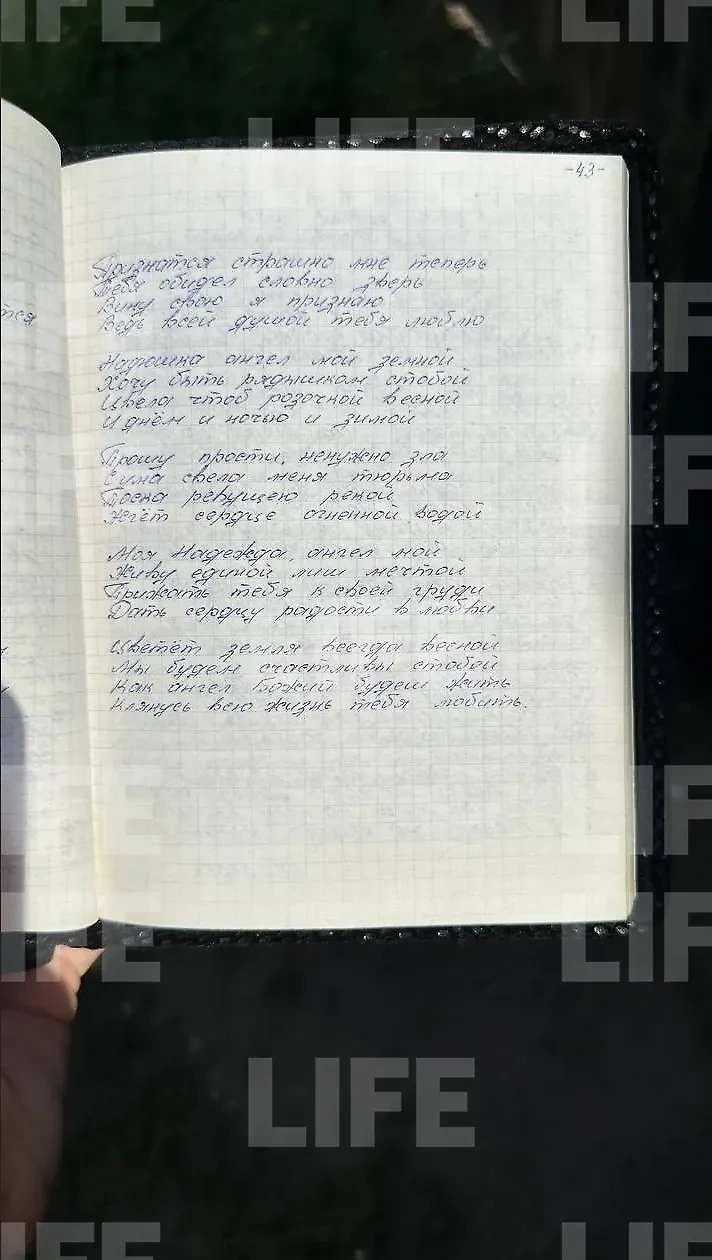 LIFE
LIFE
LIFE
-43-
Признатся страшно мне теперь
Тебя обидел словно зверь
Вину свою я признаю
Ведь всей душой тебя люблю
Надюшка ангел мой земной
Хочу быть рядышком стобой
Цвела чтоб розочкой весной
И днём и ночью и зимой
Прошу прости, ненужно зла
Сума свела меня тюрьма
Тоска ревущею рекой
Жгёт сердце огненной водой
Моя Надежда, ангел мой
Живу единой лиш мечтой
Прижать тебя к своей груди
Дать сердцу радости в любви
Цветёт земля всегда весной
Мы будем счастливы стобой
Как ангел Божий будеш жить
Клянусь всю жизнь тебя любить.
тся
LIFE
LIFE
LIFE
LIFE
LIFE
LIFE
LIFE
LIFE
LIFE